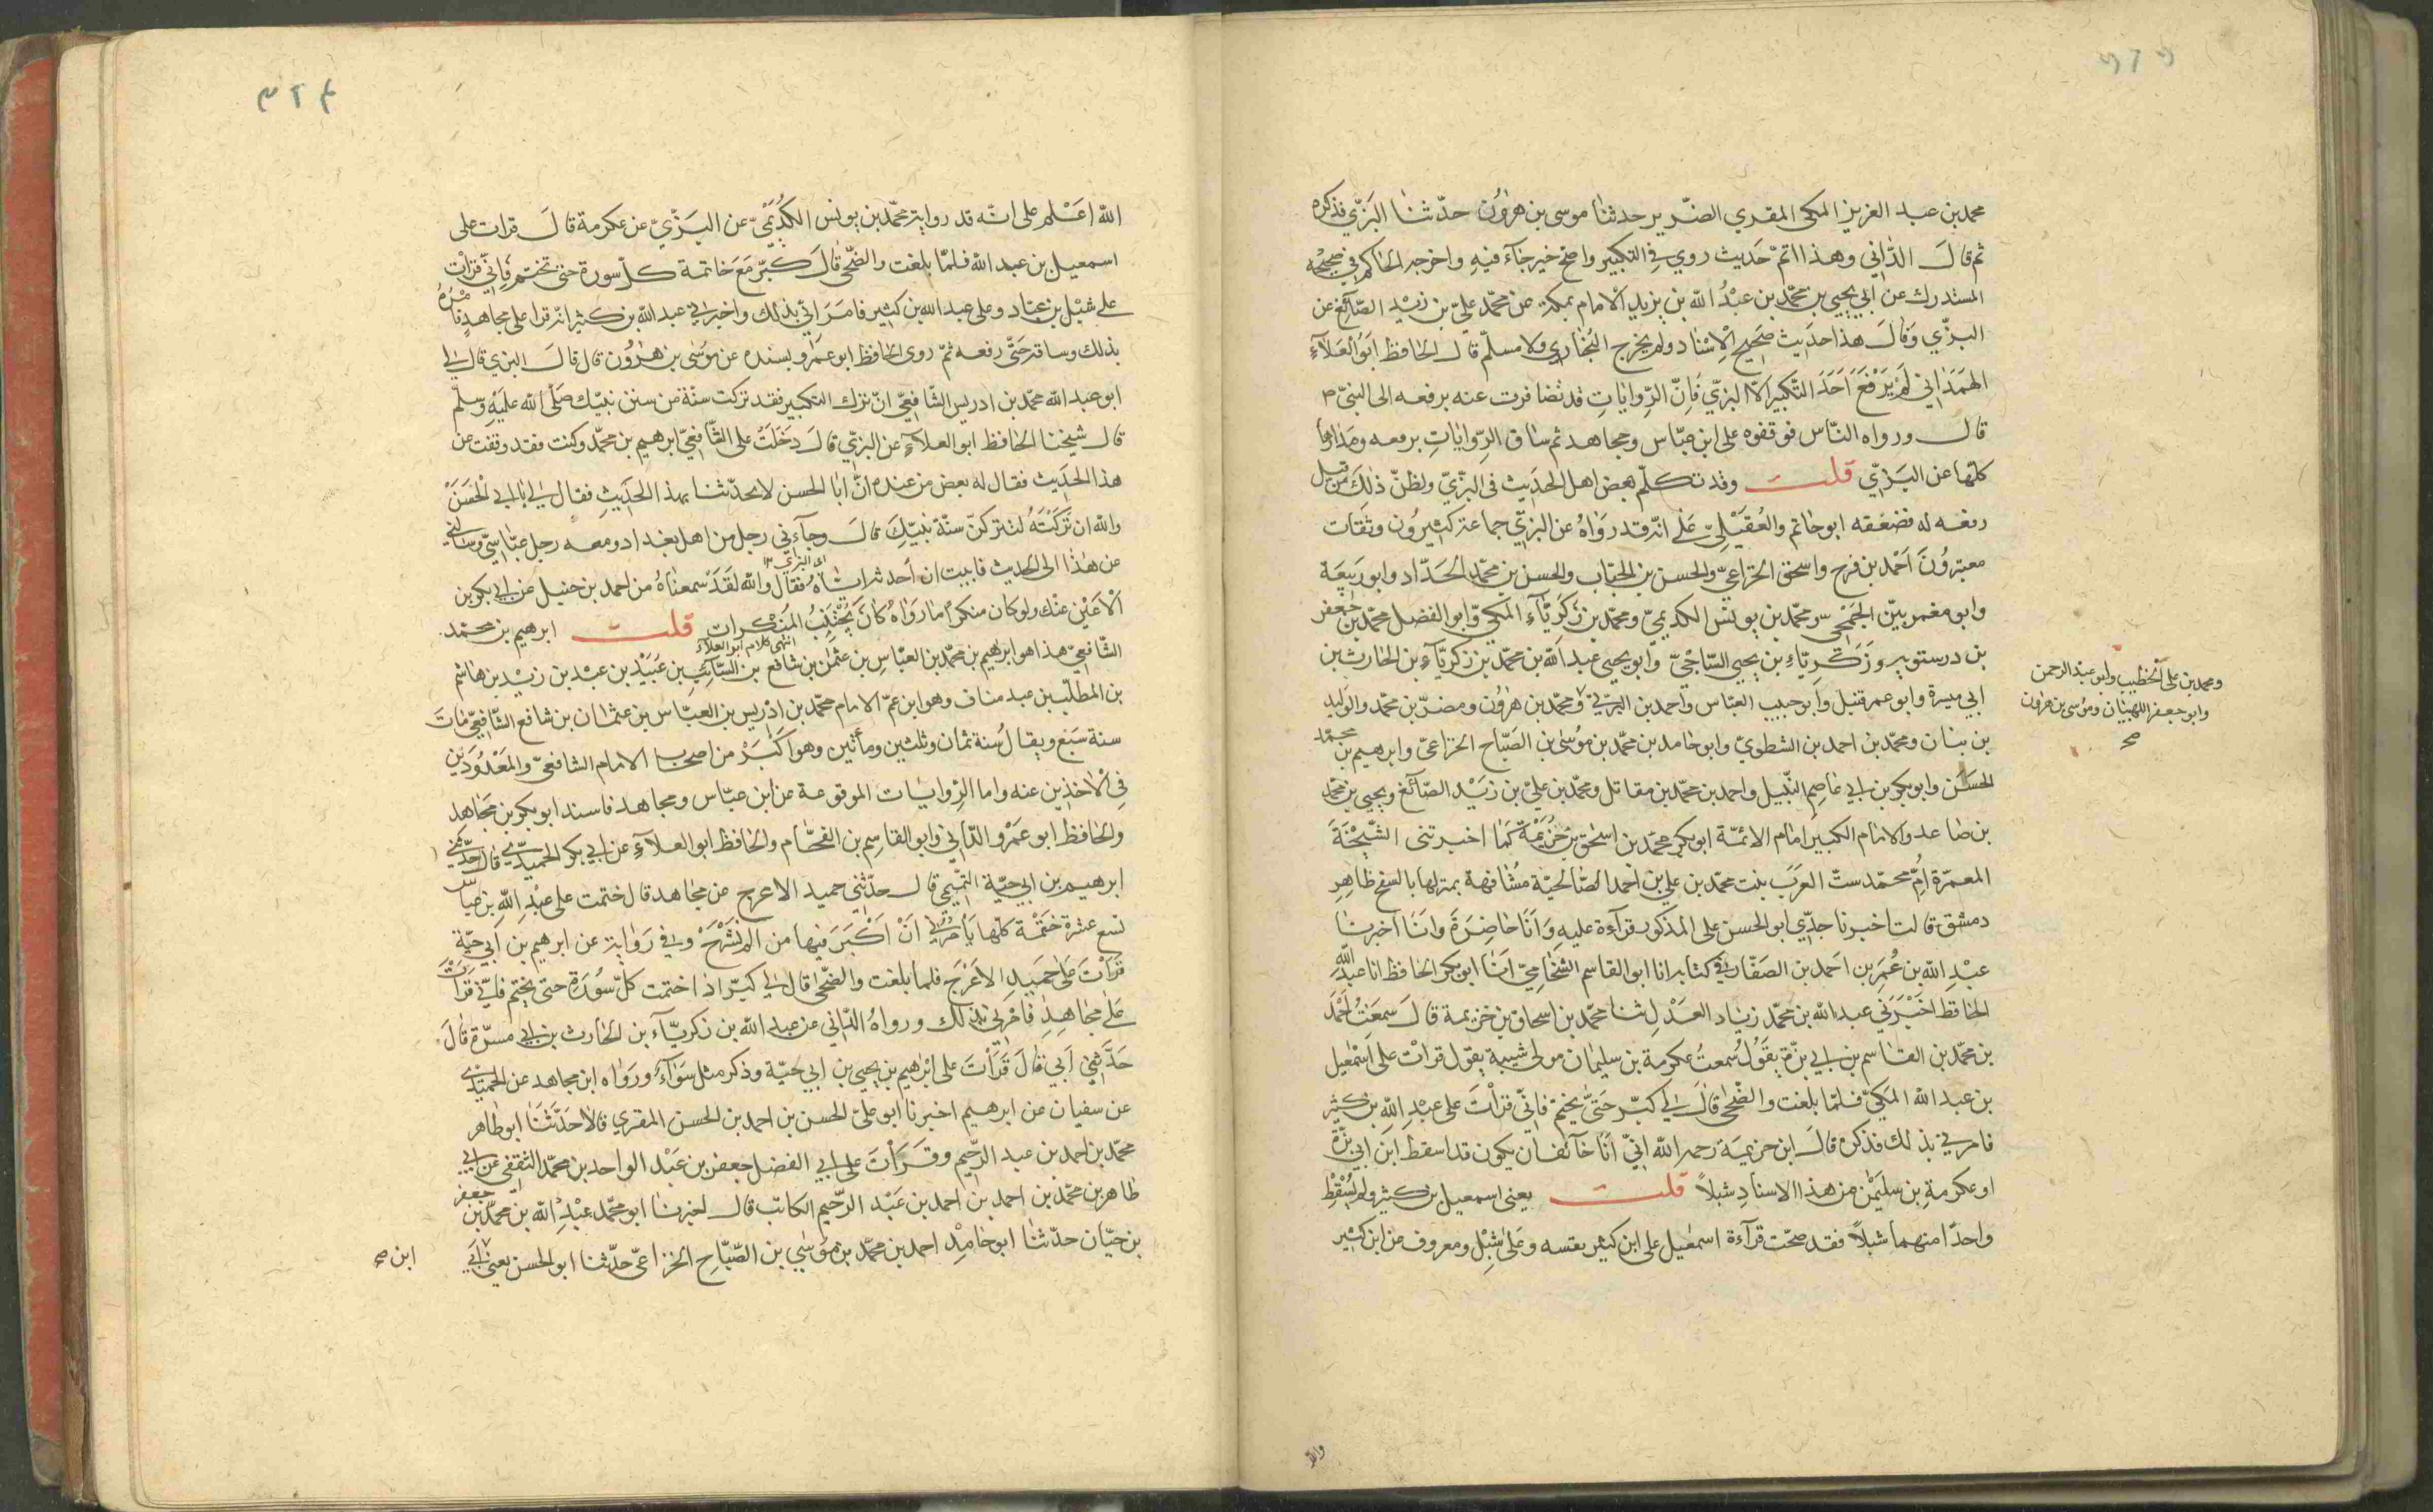 محمد بن عبد العزيز المكي المقري الضرير حدثنا موسى بن هرون حدثنا البزي فذكره
ثم قال الداني وهذا اتم حديث روي في التكبير واصح خبر جآء فيه واخرجه الحاكم في صحيحه
المستدرك عن ابي يحيي بن محمد بن عبد الله بن يزيد الامام بمكة عن محمد علي بن زيد الصآئغ عن
البزي وقال هذا حديث صحيح الاسناد ولم يخرج البخاري ولا مسلم قال الحافظ ابو العلآء
الهمداني لم يرفع احد التكبير الا البزي فان الروايات قد تضافرت عنه برفعه الى النبي ص
قال ورواه الناس فوقفوه على ابن عباس ومجاهد ثم ساق الروايات برفعه ومدارها
كلها عن البزي قلت وقد تكلم بعض اهل الحديث في البزي ولظن ذلك من قبل
رفعه له فضعفه ابو حاتم والعقيلي على انه قد رواه عن البزي جماعة كثيرون وثقات
معتبرون احمد بن فرح واسحق الخزاعي والحسن بن الحباب والحسن بن محمد الحداد وابو ربيعة
وابو معمر بين الجمحي ومحمد بن يونس الكديمي ومحمد بن زكريآء المكي وابو الفضل محمد بن جعفر
بن درستويه وزكرياء بن يحيي الساجي وابو يحيى عبد الله بن محمد بن زكريآء بن الحارث بن
ابي ميسرة وابو عمر قنبل وابو حبيب العباس واحمد بن البرتي ومحمد بن هرون ومضر بن محمد والوليد
بن بنان ومحمد بن احمد بن الشطوي وابو حامد بن محمد بن موسى بن الصباح الخزاعي وابرهيم بن محمد
الحسن وابو بكر بن ابي عاصم النبيل واحمد بن محمد بن مقاتل ومحمد بن علي بن زيد الصآئغ ويحيى بن محمد
بن صاعد والامام الكبير امام الائمة ابو بكر محمد بن اسحق بن خزيمة كما اخبرتنى الشيخة
المعمرة ام محمد ست العرب بنت محمد بن علي بن احمد الصالحية مشافهة بمنزلها بالسفح ظاهر
دمشق قالت اخبرنا جدي ابو الحسن على المذكور قرآءة عليه وانا حاضرة وانا اخبرنا
عبد الله بن عمر بن احمد بن الصفار في كتابه انا ابو القاسم الشحامي انا ابو بكر الحافظ انا عبد الله
الحافظ اخبرني عبد الله بن محمد زياد العدل ثنا محمد بن اسحاق بن خزيمة قال سمعت احمد
بن محمد بن القاسم بن ابي بزة يقول سمعت عكرمة بن سليمان مولى شيبة يقول قرات على اسمعيل
بن عبد الله المكي فلما بلغت والضحى قال لي كبر حتى يختم فاني قرات على عبد الله بن كثير
فامرني بذلك فذكره قال ابن خزيمة رحمه الله اني انا خآئف ان يكون قد اسقط ابن ابي بزة
او عكرمة بن سليمن من هذا الاسناد شبلا قلت يعنى اسمعيل بن كثير ولم يسقط
واحدا منهما شبلا فقد صحت قرآءة اسمعيل على ابن كثير بفسه وعلى شبل ومعروف عن ابن كثير
ومحمد بن على الخطيب وابو عبد الرحمن
وابو جعفر اللهبيان وموسى بن هرون
صح
والله
٣٢٤
الله اعلم على انه قد رواية محمد بن يونس الكديمي عن البزي عن عكرمة قال قرات على
اسمعيل بن عبد الله فلما بلغت والضحى قال كبر مع خاتمة كل سورة حتى تختم فاني قرات
على شبل بن عباد وعلى عبد الله بن كثير فامراني بذلك واخبراني عبد الله بن كثير انه قرا على مجاهد فامره
بذلك وساقه حتى رفعه ثم روى الحافظ ابو عمرو بسنده عن موسى بن هرون قال قال البزي قال لي
ابو عبد الله محمد بن ادريس الشافعي ان تركت التكبير فقد تركت سنة من سنن نبيك صلى الله عليه وسلم
قال شيخنا الحافظ ابو العلآء عن البزي قال دخلت على الشافعي ابرهيم بن محمد وكنت فقد وقفت عن
هذا الحديث فقال له بعض من عنده ان ابا الحسن لا يحدثنا بهذا الحديث فقال لي يا ابا الحسن
والله ان تركته لتتركن سنة نبيك قال وجآءني رجل من اهل بغداد ومعه رجل عباسي وسالني
عن هذا الحديث فابيت ان احدثه اياه فقال والله لقد سمعناه من احمد بن حنبل عن ابي بكر بن
اى البزي
الاعين عنك ولو كان منكرا ما رواه كان يجتنب المنكرات قلت ابرهيم بن محمد
انتهى كلام ابو العلآء
الشافعي هذا هو ابرهيم بن محمد بن العباس بن عثمن بن شافع بن السآئب بن عبيد بن عبد بن زيد بن هاشم
بن المطلب بن عبد مناف وهو ابن عم الامام محمد بن ادريس بن العباس بن عثمان بن شافع الشافعي مات
سنة سبع ويقال سنة ثمان وثلثين ومأتين وهو اكبر من اصحاب الامام الشافعي والمعدودين
في الاخذين عنه واما الروايات الموقوعة عن ابن عباس ومجاهد فاسند ابو بكر بن مجاهد
والحافظ ابو عمرو الداني وابو القاسم بن الفحام والحافظ ابو العلآء عن ابي بكر الحميدي قال حدثني
ابرهيم بن ابي حية التميمي قال حدثني حميد الاعرج عن مجاهد قال ختمت على عبد الله بن عباس
تسع عشرة ختمة كلها يأمرني ان اكبر فيها من الم نشرح وفي رواية عن ابرهيم بن ابي حية
قرات على حميد الاعرج فلما بلغت والضحى قال لي كبر اذا ختمت كل سورة حتى يختم فاني قرات
على مجاهد فامرني بذلك ورواه الداني عن عبد الله بن زكريآء بن الحارث بن ابي مسرة قال
حدثني ابي قال قرات على ابرهيم بن يحيى بن ابي حية وذكر مثل سوآء ورواه ابن مجاهد عن الحميدي
عن سفيان عن ابرهيم اخبرنا ابو على الحسن بن احمد بن الحسن المقري قالا حدثنا ابو طاهر
محمد بن احمد بن عبد الرحيم وقرات على ابي الفضل جعفر بن عبد الواحد بن محمد الثقفي عن ابي
طاهر بن محمد بن احمد بن احمد بن عبد الرحيم الكاتب قال اخبرنا ابو محمد عبد الله بن محمد بن جعفر
بن حيان حدثنا ابو حامد احمد بن محمد بن موسي بن الصباح الخزاعى حدثنا ابو الحسن يعني ابي
ابن صح